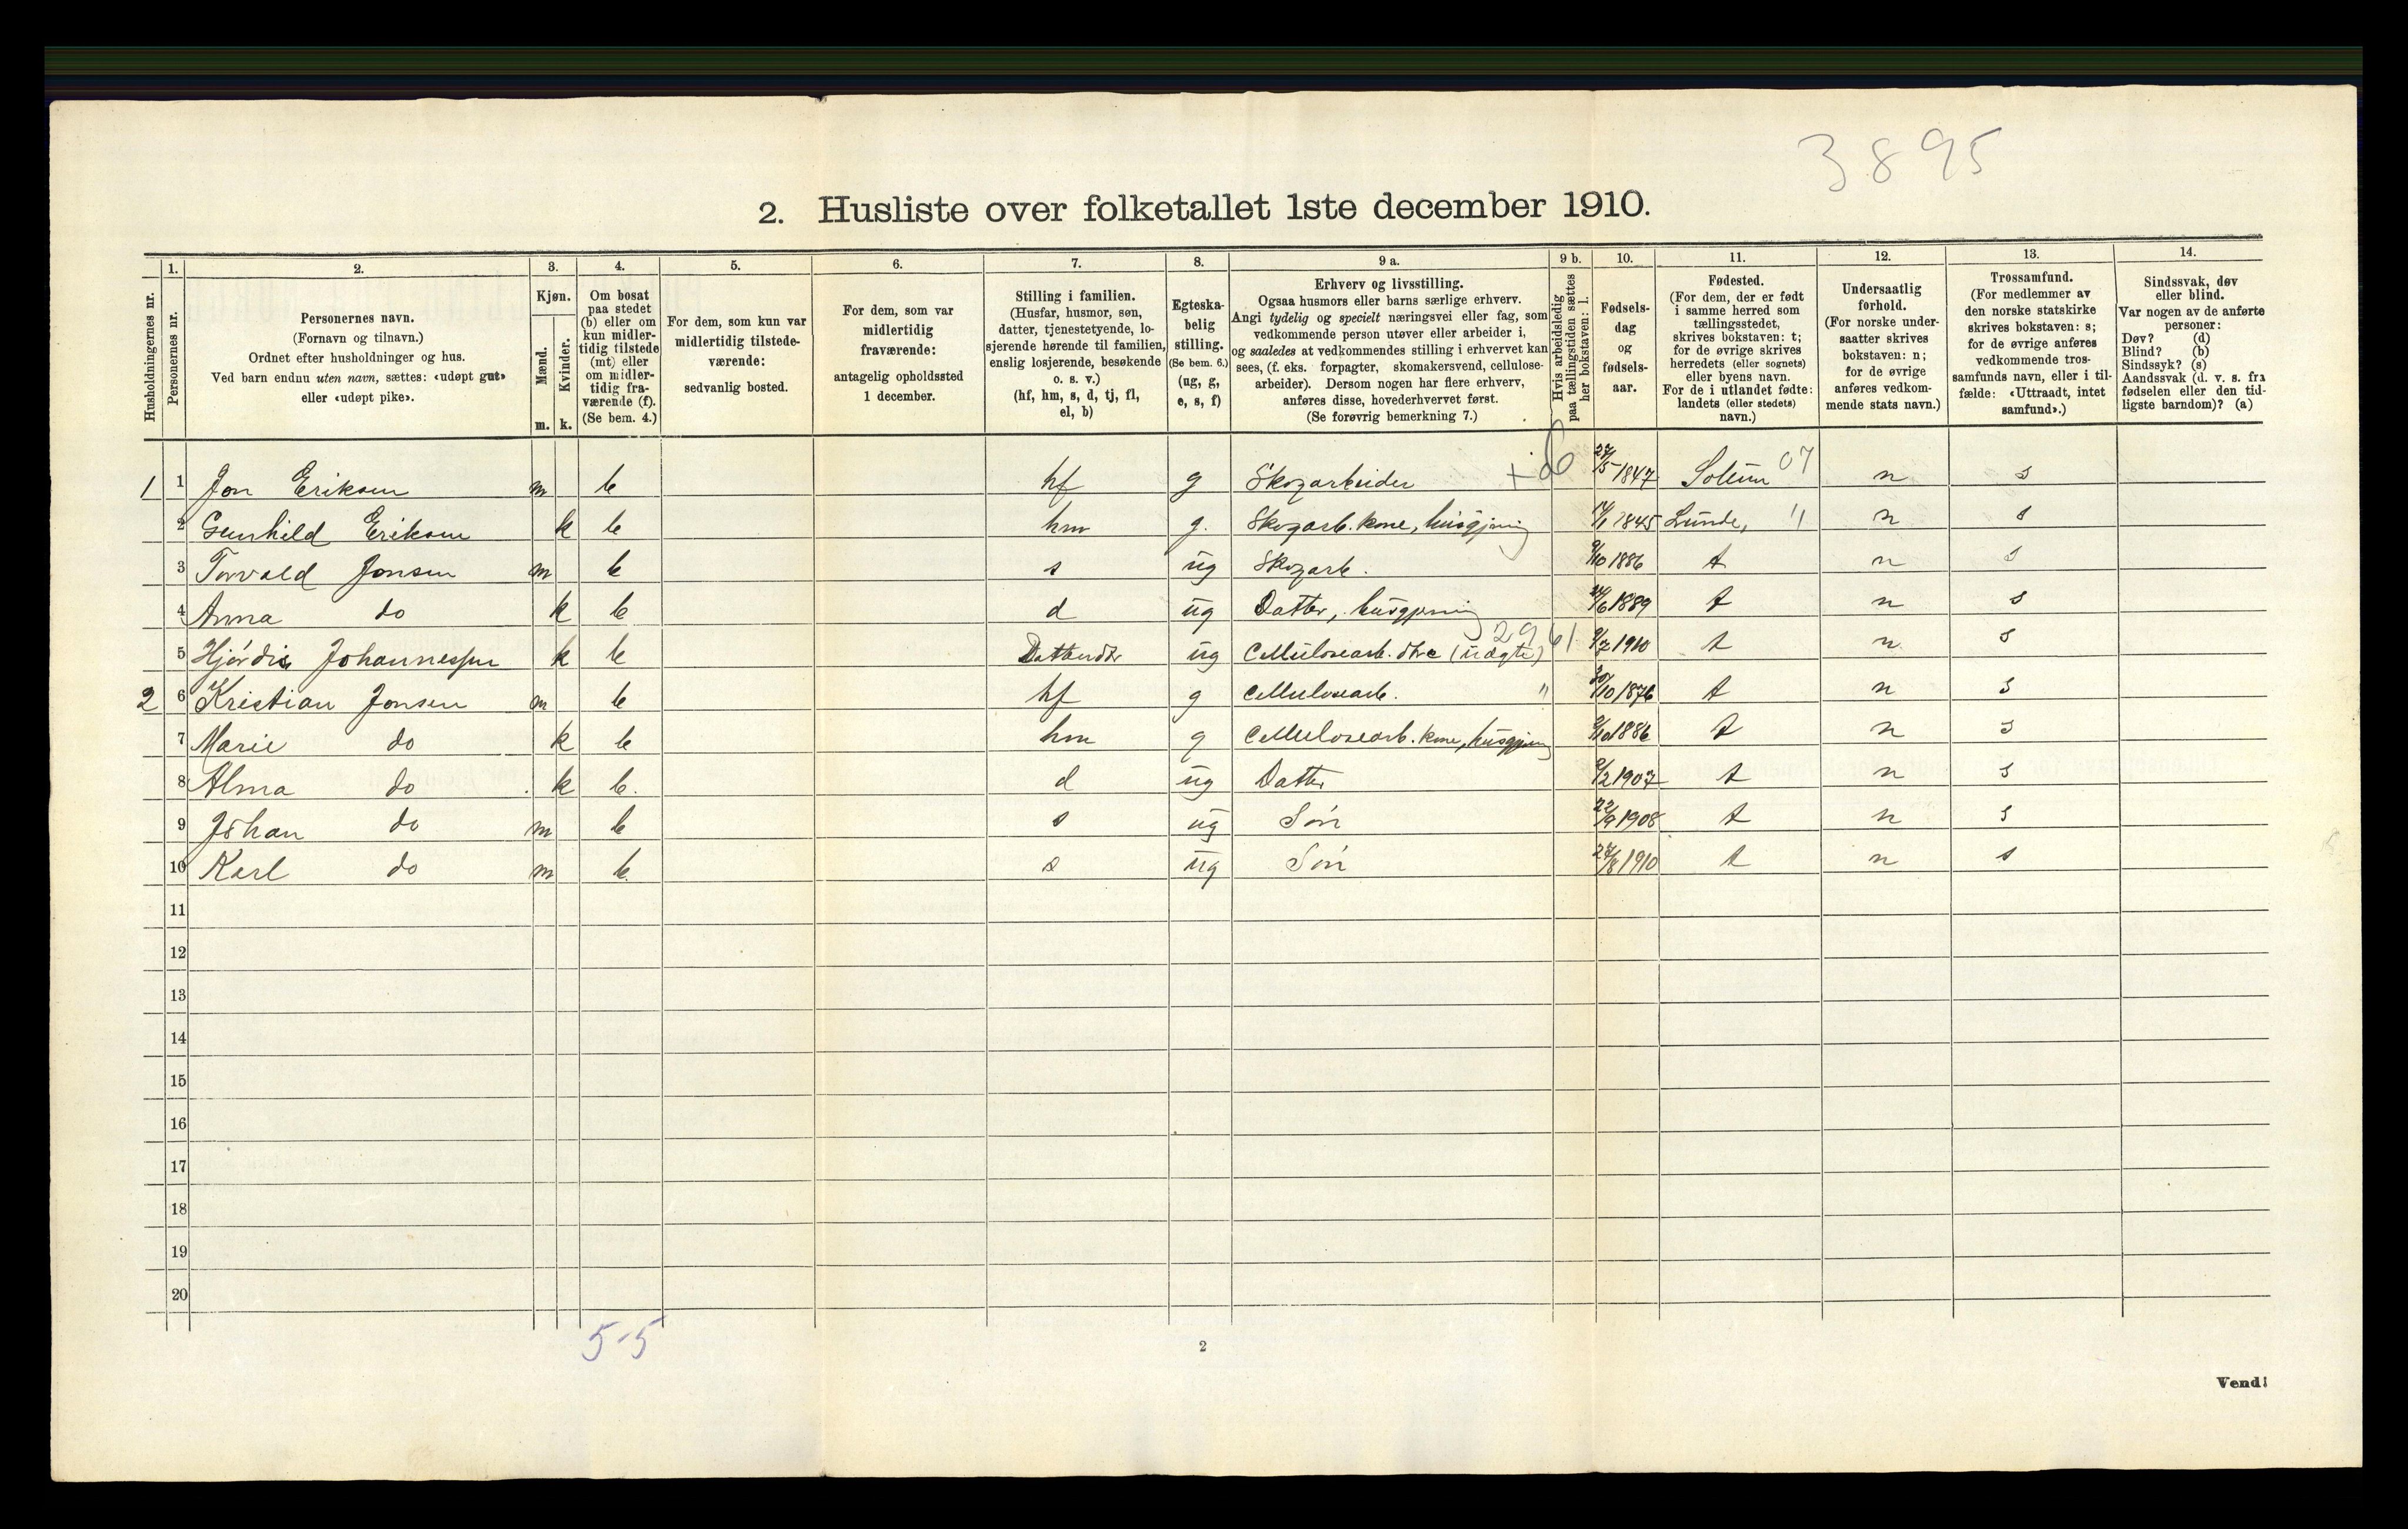 3895
2. Husliste over folketallet 1ste december 1910.
Husholdningernes nr.
1. Personernes nr.
2. Personernes navn. (Fornavn og tilnavn.) Ordnet efter husholdninger og hus. Ved barn endnu uten navn, sættes: «udøpt gut» eller «udøpt pike».
3. Kjøn. Mænd. m. Kvinder. k.
4. Om bosat paa stedet (b) eller om kun midlertidig tilstede (mt) eller om midlertidig fraværende (f). (Se bem. 4.)
5. For dem, som kun var midlertidig tilstedeværende: sedvanlig bosted.
6. For dem, som var midlertidig fraværende: antagelig opholdssted 1 december.
7. Stilling i familien. (Husfar, husmor, søn, datter, tjenestetyende, losjerende hørende til familien, enslig losjerende, besøkende o. s. v.) (hf, hm, s, d, tj, fl, el, b)
8. Egteskabelig stilling. (Se bem. 6.) (ug, g, e, s, f)
9 a. Erhverv og livsstilling. Ogsaa husmors eller barns særlige erhverv. Angi tydelig og specielt næringsvei eller fag, som vedkommende person utøver eller arbeider i, og saaledes at vedkommendes stilling i erhvervet kan sees, (f. eks. forpagter, skomakersvend, cellulosearbeider). Dersom nogen har flere erhverv, anføres disse, hovederhvervet først. (Se forøvrig bemerkning 7.)
9 b. Hvis arbeidsledig paa tællingstiden sættes her bokstaven: l.
10. Fødselsdag og fødselsaar.
11. Fødested. (For dem, der er født i samme herred som tællingsstedet, skrives bokstaven: t; for de øvrige skrives herredets (eller sognets) eller byens navn. For de i utlandet fødte: landets (eller stedets) navn.)
12. Undersaatlig forhold. (For norske undersaatter skrives bokstaven: n; for de øvrige anføres vedkommende stats navn.)
13. Trossamfund. (For medlemmer av den norske statskirke skrives bokstaven: s; for de øvrige anføres vedkommende trossamfunds navn, eller i tilfælde: «Uttraadt, intet samfund».)
14. Sindssvak, døv eller blind. Var nogen av de anførte personer: Døv? (d) Blind? (b) Sindssyk? (s) Aandssvak (d. v. s. fra fødselen eller den tidligste barndom)? (a)
1 1 Jon Eriksen m b hf g Skogarbeider 27/5 1847 Solum 07 n s
2 Gunhild Eriksen k b hm g. Skogarb. kone, husgjøning 1845 Lunde, " n s
3 Torvald Jonsen m b s ug Skogarb. 9/10 1886 t n s
4 Anna do k b d ug Datter, husgjøning 24/6 1889 t n s
5 Hjørdis Johannessen k b Datterdtr ug Cellulosearb. dtr (uægte) 2961 9/7 1910 t n s
2 6 Kristian Jonsen m b hf g Cellulosearb. " 30/10 1876 t n s
7 Marie do k b hm g Cellulosearb. kone, husgjøning 9/10 1886 t n s
8 Alma do k b. d ug Datter 9/2 1907 t n s
9 Johan do m b s ug Søn 22/9 1908 t n s
10 Karl do m b. s ug Søn 27/8 1910 t n s
11
12
13
14
15
16
17
18
19
20
5-5
2
Vend!